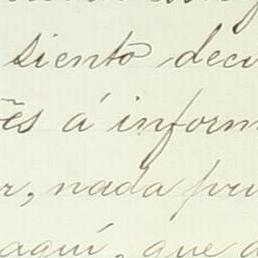 siento deci
ẽs á inform
r, nada pu
aquí, que